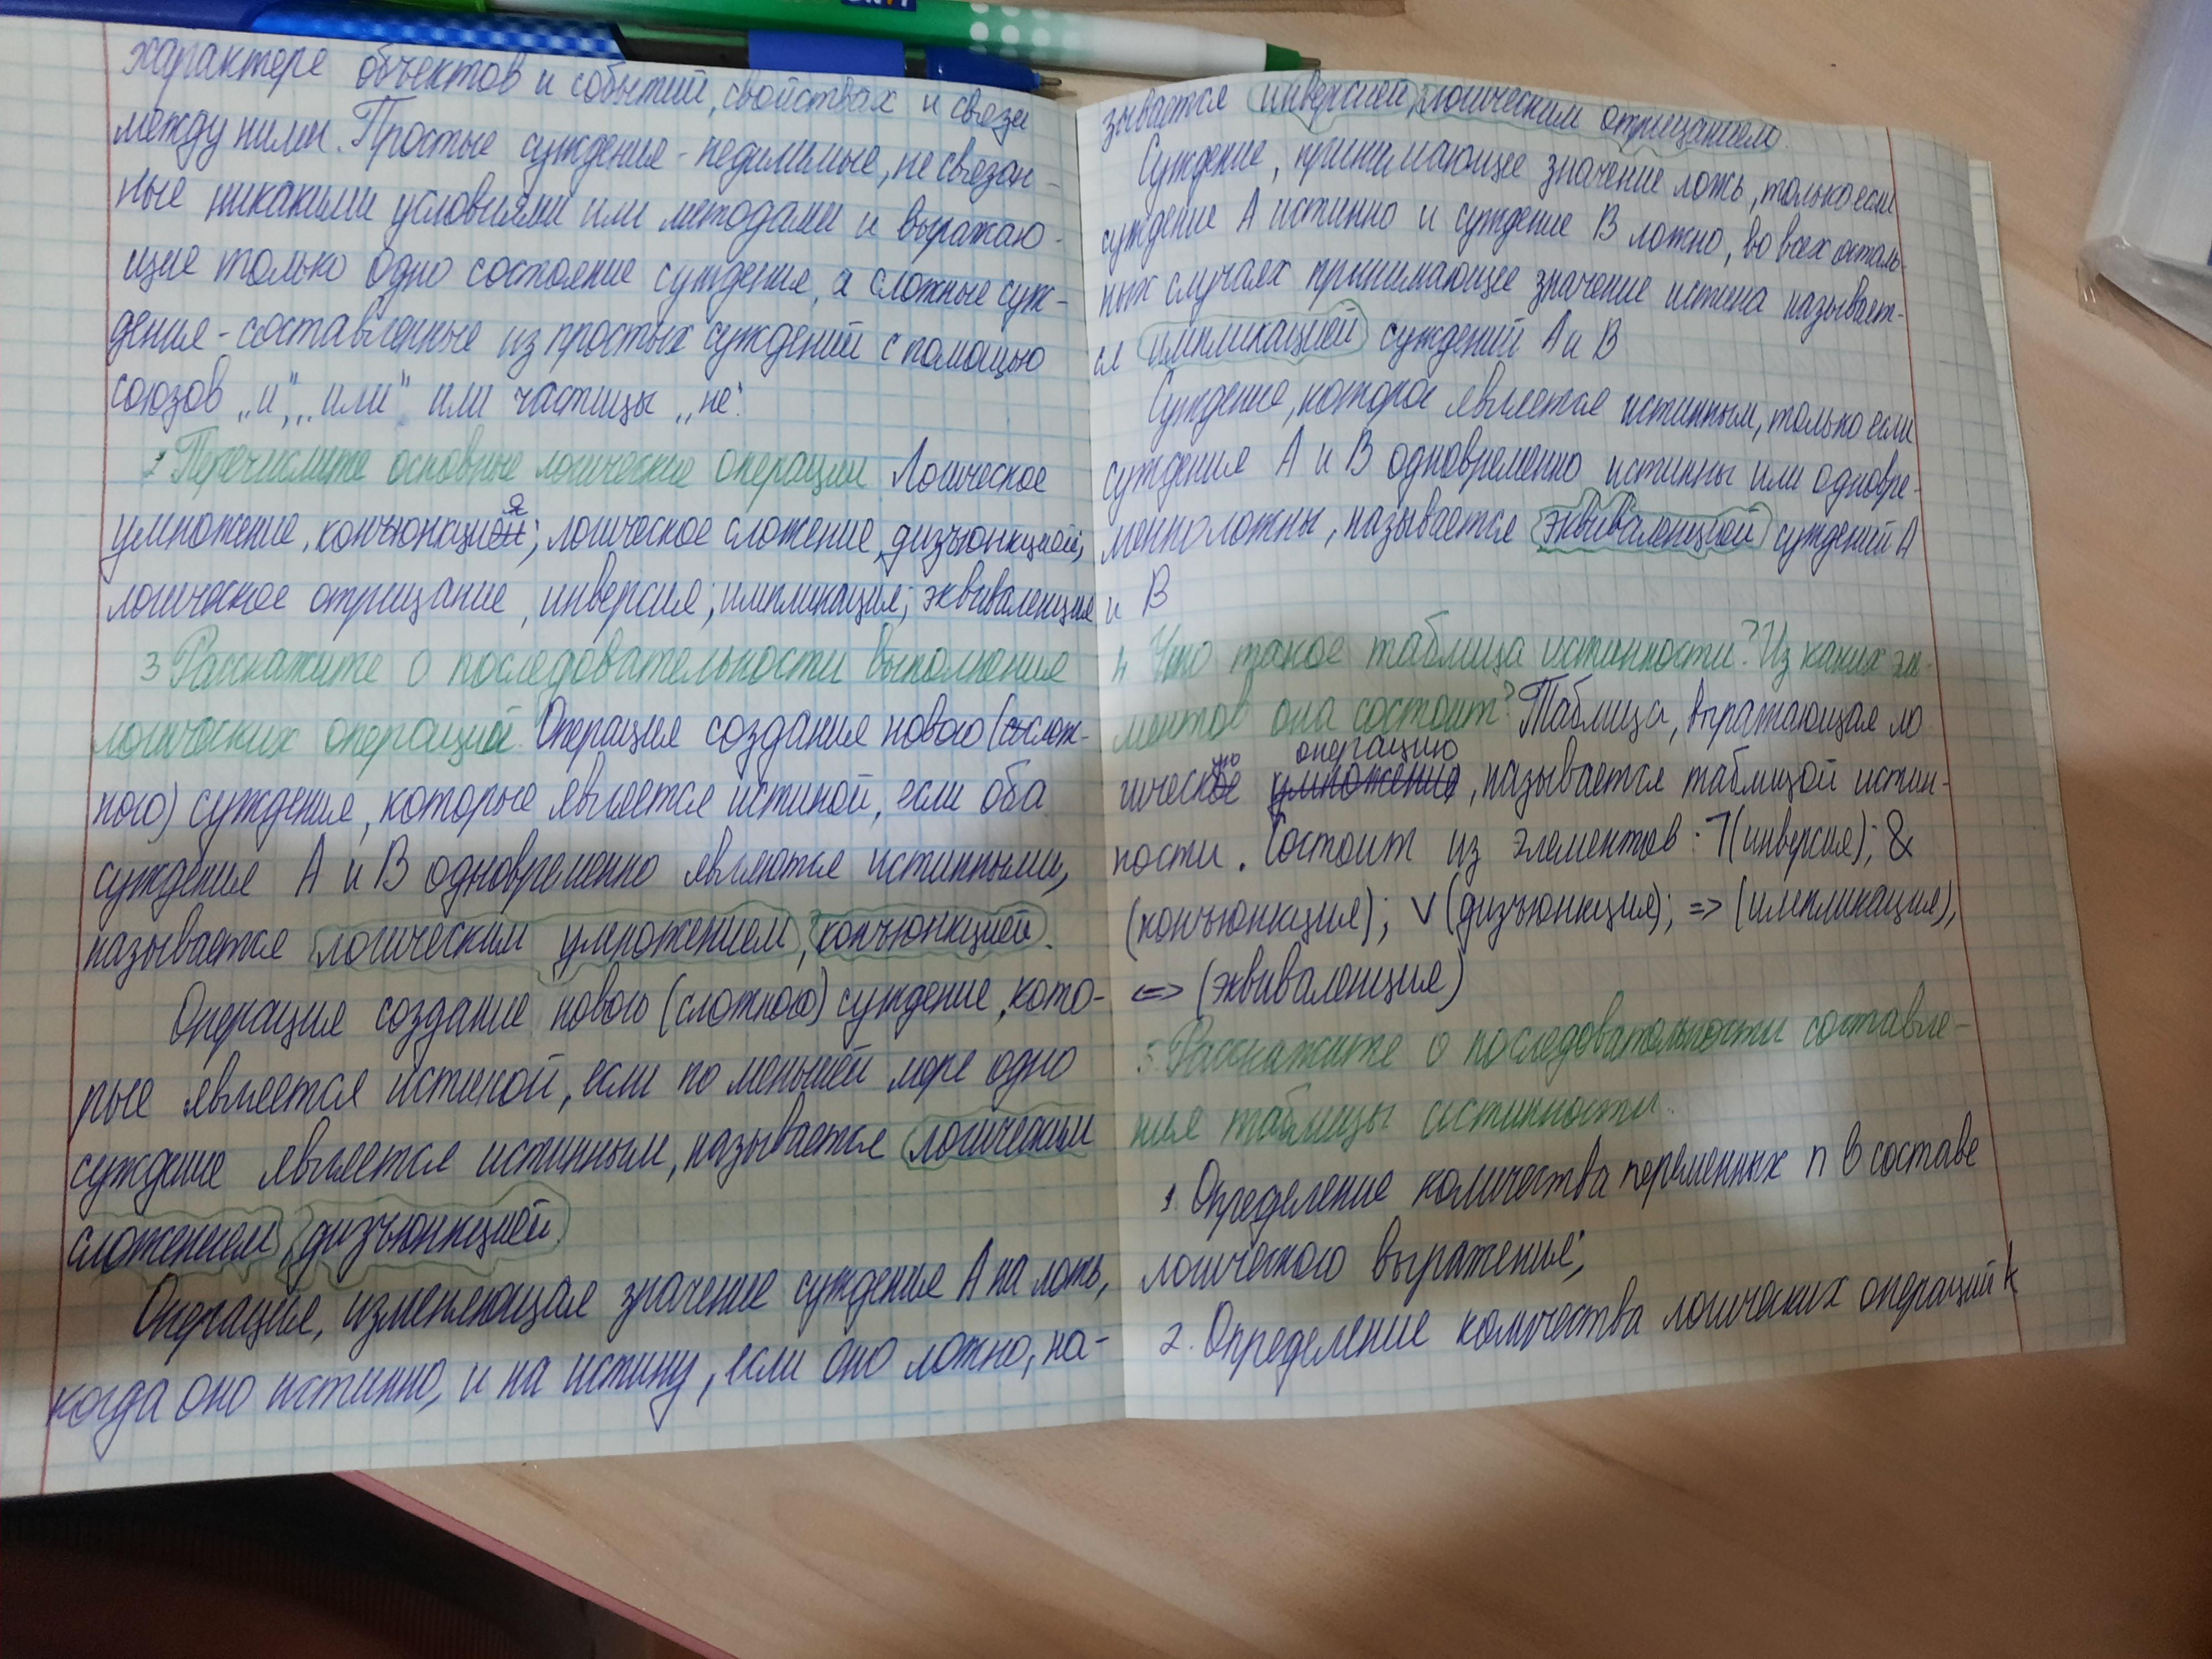 характере объектов и событий, свойствах и связи
между ними. Простые суждения - неделимые, не связан-
ные никакими условиями или методами и выражаю-
щие только одно состояние суждения, а сложные суж-
дения - составленные из простых суждений с помощью
союзов „и", „или" или частицы „не".
2 Перечислите основные логические операции Логическое
умножение, конъюнкция; логическое сложение, дизъюнкцией;
логическое отрицание, инверсия; импликация; эквиваленция
3 Расскажите о последовательности выполнения
логических операций. Операция создания нового (слож-
ного) суждения, которые является истиной, если оба
суждения А и В одновременно являются истинными,
называется логическим умножением, конъюнкцией.
Операция создание нового (сложного) суждение, кото-
рые является истиной, если по меньшей мере одно
суждение является истинным, называется логическим
сложением, дизъюнкцией.
Операция, изменяющая значение суждение А на ложь,
когда оно истинно, и на истину, если оно ложно, на-
зывается инверсией, логическим отрицанием.
Суждение, принимающее значение ложь, только если
суждение А истинно и суждение В ложно, во всех осталь-
ных случаях принимающее значение истина называет-
ся импликацией суждений А и В
Суждение, которое является истинным, только если
суждения А и В одновременно истинны или одновре-
менно ложны, называется эквиваленцией суждений А
и В
4 Что такое таблица истинности? Из каких эл-
ментов она состоит? Таблица, выражающая ло
гическую операцию, называется таблицой истин-
ности. Состоит из элементов: ˥(инверсия); &
(конъюнкция); V (дизъюнкция); => (импликация),
<=> (эквиваленция)
5. Расскажите о последовательности составле-
ния таблицы истинности.
1. Определение количества переменных n в составе
логического выражения;
2. Определение количества логических операций k